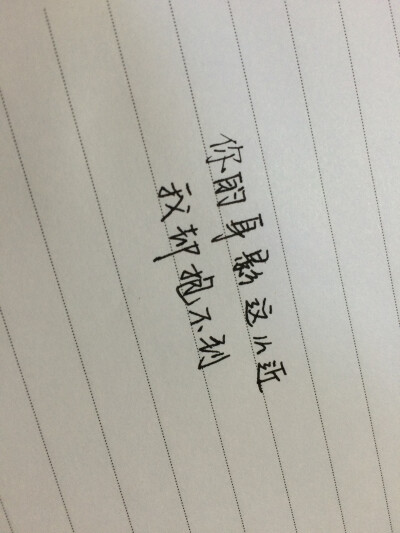 你的身影这么近
我却抱不到